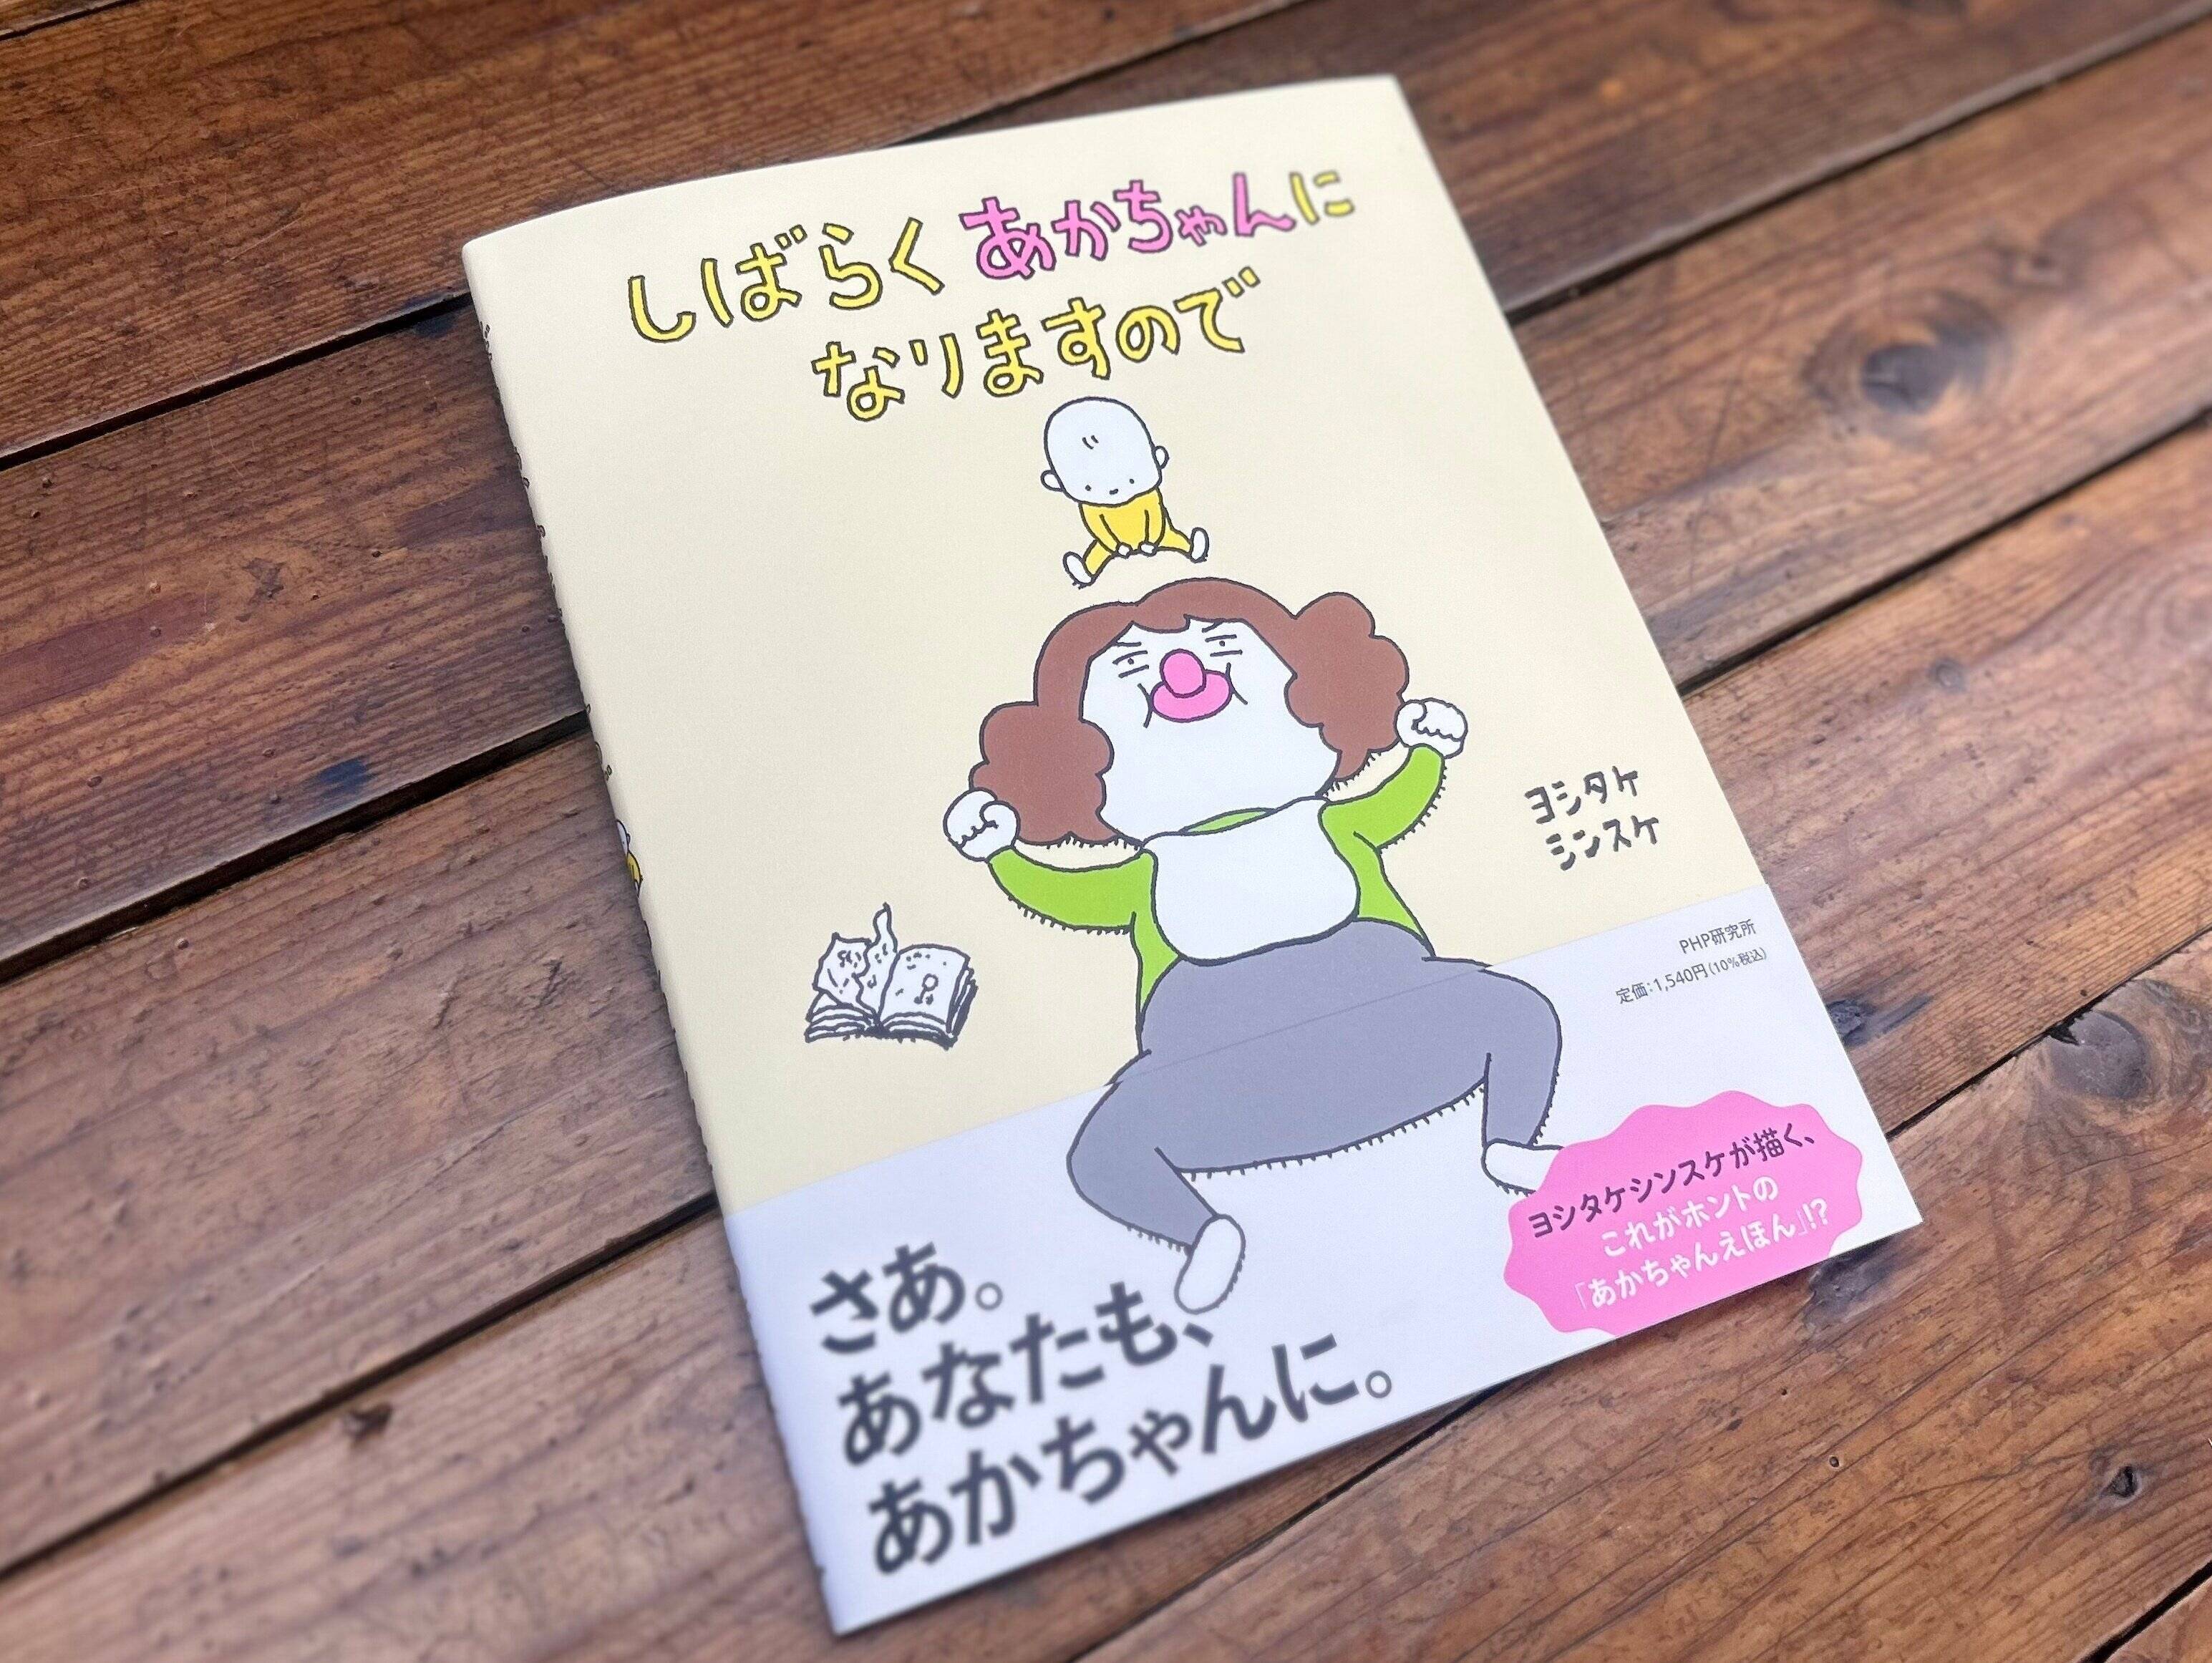 しばらく あかちゃんに
なりますので
ヨシタケ
シンスケ
PHP研究所
定価:1,540円(10%税込)
ヨシタケシンスケが描く、
これがホントの
「あかちゃんえほん」!?
さあ。
あなたも、
あかちゃんに。